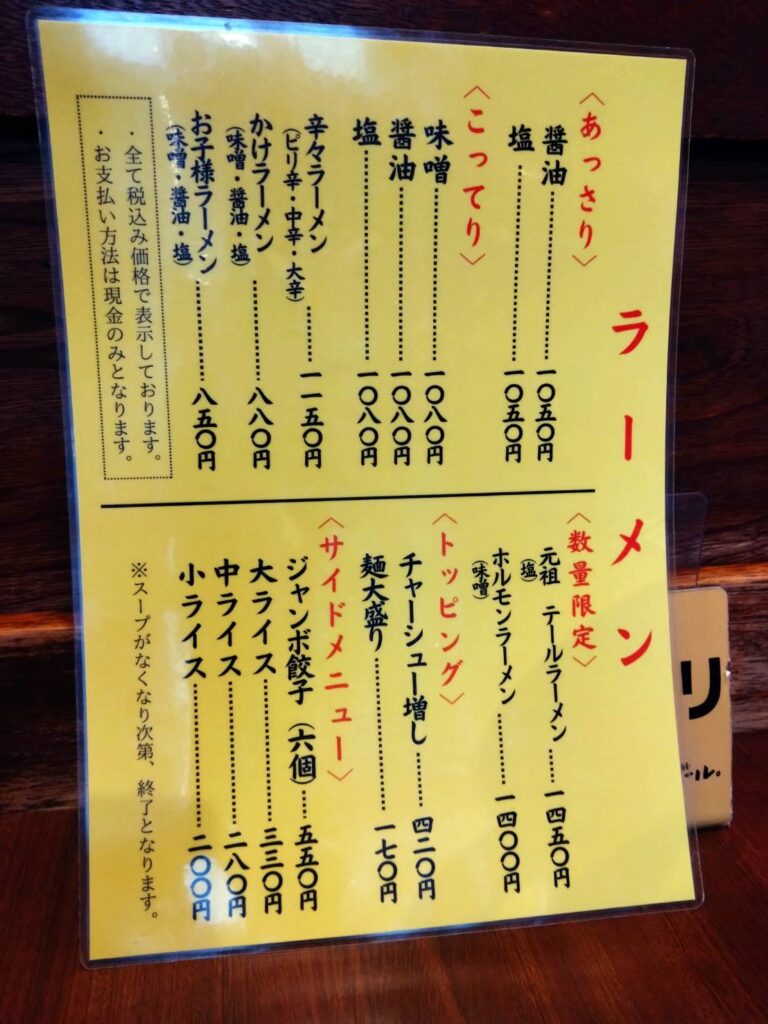 ラーメン
〈あっさり〉
醤油………一〇五〇円
塩………一〇五〇円
〈こってり〉
味噌………一〇八〇円
醤油………一〇八〇円
塩………一〇八〇円
辛々ラーメン………一一五〇円
(ピリ辛・中辛・大辛)
かけラーメン………八八〇円
(味噌・醤油・塩)
お子様ラーメン………八五〇円
(味噌・醤油・塩)
・全て税込み価格で表示しております。
・お支払い方法は現金のみとなります。
〈数量限定〉
元祖 テールラーメン……一四五〇円
(塩)
ホルモンラーメン………一四〇〇円
(味噌)
〈トッピング〉
チャーシュー増し……四二〇円
麺大盛り………一七〇円
〈サイドメニュー〉
ジャンボ餃子(六個)…五五〇円
大ライス………三三〇円
中ライス………二八〇円
小ライス………二〇〇円
※スープがなくなり次第、終了となります。
リ
ール。